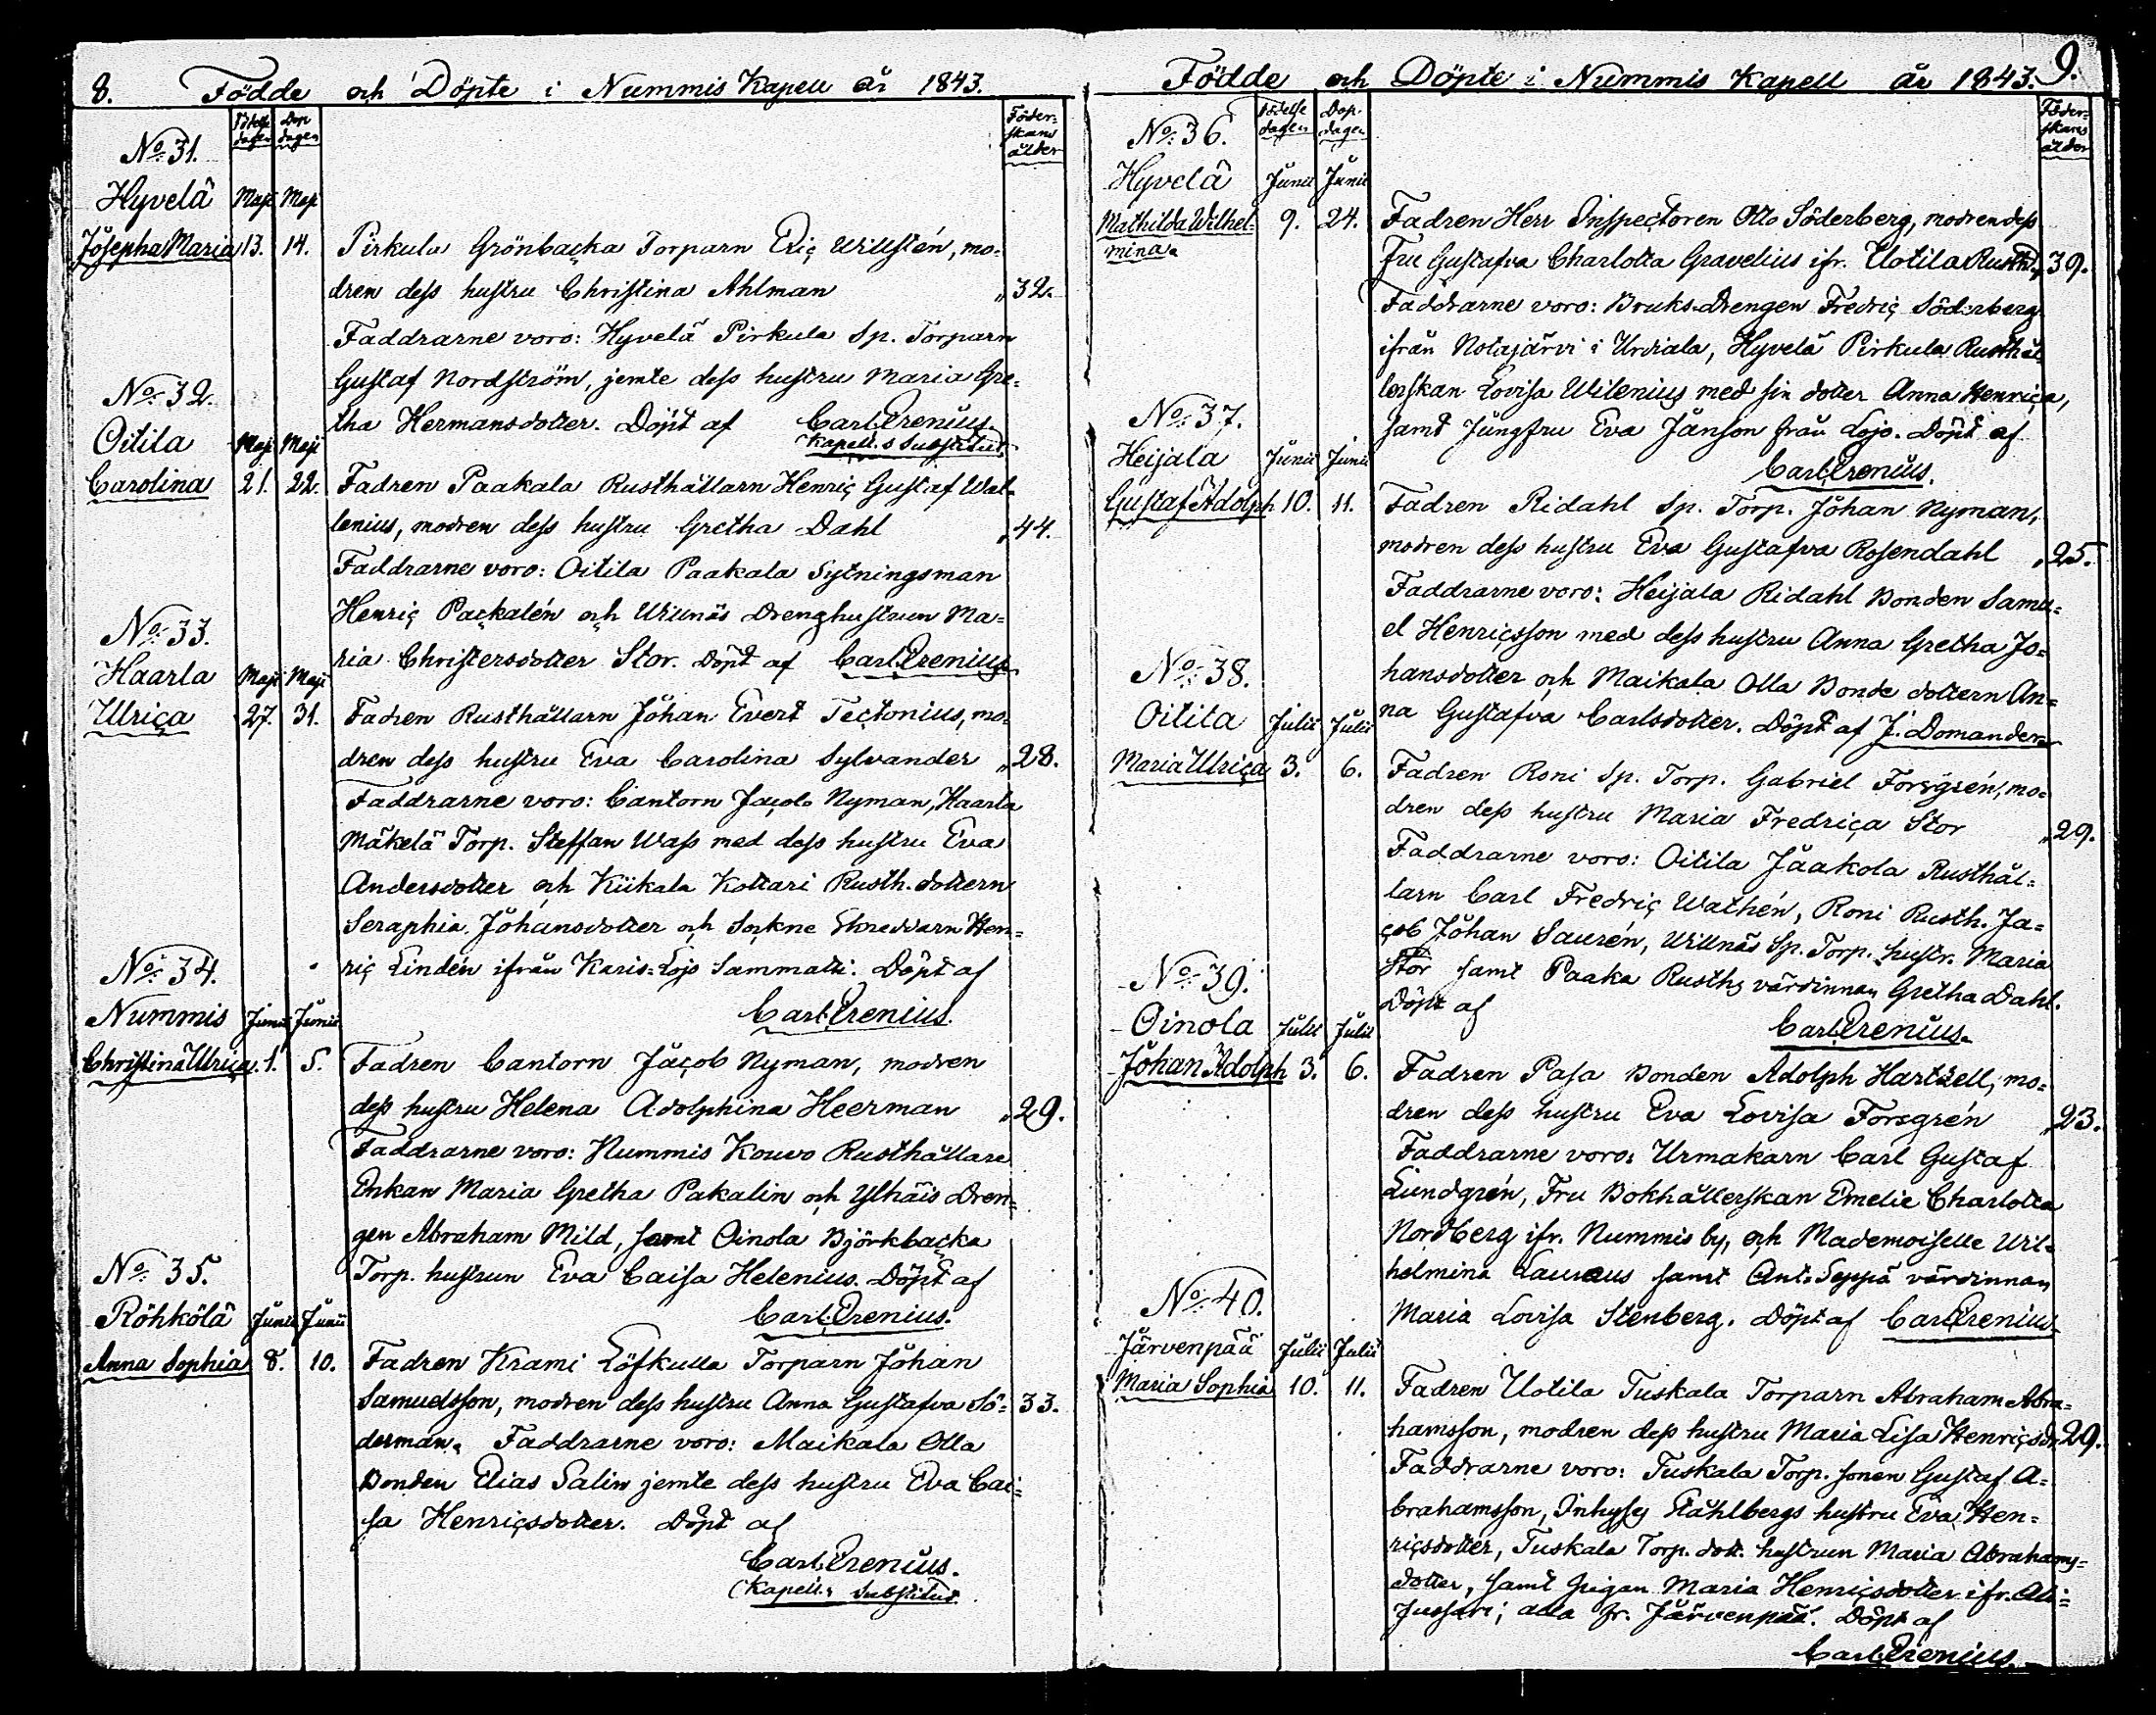 8. Födde och Döpte i Nummis Kapell år 1843.
Födelse dagen
Dop dagen
Föder-
skans
ålder
No: 31.
Hyvelä Maji Maji
Josepha Maria 13. 14. Pirkula Grönbacka Torparn Eric Willstén, mo-
dren dess hustru Christina Ahlman " 32.
Faddrarne voro: Hyvelä Pirkula Sp. Torparn
Gustaf Nordström, jemte dess hustru Maria Gre-
tha Hermansdotter. Döpt af Carl Irenius.
Kapell.s Substitut.
No: 32.
Oitila Maji Maji
Carolina 21. 22. Fadren Paakala Rusthållarn Henric Gustaf Wal-
lenius, modren dess hustru Gretha Dahl " 44.
Faddrarne voro: Oitila Paakala Sytningsman
Henric Packalén och Willnäs Drenghustrun Ma-
ria Christersdotter Stor. Döpt af Carl Irenius
No: 33.
Haarla Maji Maji
Ulrica 27. 31. Fadren Rusthållarn Johan Evert Tectonius, mo-
dren dess hustru Eva Carolina Sylvander " 28.
Faddrarne voro: Cantorn Jacob Nyman, Haarla
Mäkelä Torp. Steffan Wass med dess hustru Eva
Andersdotter och Kiikala Kottari Rusth. dottern
Seraphia Johansdotter och Sockne Skreddarn Hen-
ric Lindén ifrån Karis-Lojo Sammatti. Döpt af
Carl Irenius.
No: 34.
Nummis Junii Junii
Christina Ulrica 1. 5. Fadren Cantorn Jacob Nyman, modren
dess hustru Helena Adolphina Heerman " 29.
Faddrarne voro: Nummis Kouvo Rusthållare
Enkan Maria Gretha Pakalin och Ylhäis Dren-
gen Abraham Mild, samt Oinola Björkbacka
Torp. hustrun Eva Caisa Helenius. Döpt af
Carl Irenius.
No: 35.
Röhkölä Junii Junii
Anna Sophia 8. 10. Fadren Krami Löfkulla Torparn Johan
Samuelsson, modren dess hustru Anna Gustafva Sö- 33.
derman. Faddrarne voro: Maikala Olla
Bonden Elias Salin jemte dess hustru Eva Cai-
sa Henricsdotter. Döpt af
Carl Irenius.
Kapell.s Substitut.
Födde och Döpte i Nummis Kapell år 1843. 9.
Födelse dagen
Dop dagen
Föder-
skans
ålder
No: 36.
Hyvelä Junii Junii
Mathilda Wilhel- 9. 24. Fadren Herr Inspectoren Otto Söderberg, modren dess
mina. Fru Gustafva Charlotta Gravelius ifr. Uotila Rusth. " 39.
Faddrarne voro: Bruks-Drengen Fredric Söderberg
ifrån Notajärvi i Urdiala, Hyvelä Pirkula Rusthål-
lerskan Lovisa Wilenius med sin dotter Anna Henrica,
samt Jungfru Eva Janson från Lojo. Döpt af
Carl Irenius.
No: 37.
Heijala Junii Junii
Gustaf Adolph 10. 11. Fadren Ridahl Sp. Torp. Johan Nyman,
modren dess hustru Eva Gustafva Rosendahl " 25.
Faddrarne voro: Heijala Ridahl Bonden Samu-
el Henricsson med dess hustru Anna Gretha Jo-
hansdotter och Maikala Olla Bonde dottern An-
na Gustafva Carlsdotter. Döpt af J. Domander.
No: 38.
Oitila Julii Julii
Maria Ulrica 3. 6. Fadren Roni Sp. Torp. Gabriel Forsgrén, mo-
dren dess hustru Maria Fredrica Stor " 29.
Faddrarne voro: Oitila Jaakola Rusthål-
larn Carl Fredric Wathén, Roni Rusth. Ja-
cob Johan Saurén, Willnäs Sp. Torp. hustr. Maria
Stor samt Paaka Rusth.s värdinnan Gretha Dahl.
Döpt af
Carl Irenius.
No: 39.
Oinola Julii Julii
Johan Adolph 3. 6. Fadren Pasa Bonden Adolph Hartzell, mo-
dren dess hustru Eva Lovisa Forsgrén " 23.
Faddrarne voro: Urmakarn Carl Gustaf
Lundgrén, Fru Bokhållerskan Emelie Charlotta
Nordberg ifr. Nummis by, och Mademoiselle Wil-
helmina Lauræus samt Ant. Seppä värdinnan
Maria Lovisa Stenberg. Döpt af Carl Irenius
No: 40.
Järvenpää Julii Julii
Maria Sophia 10. 11. Fadren Uotila Tuskala Torparn Abraham Abra-
hamsson, modren dess hustru Maria Lisa Henricsdr 29.
Faddrarne voro: Tuskala Torp. sonen Gustaf A-
brahamsson, Inhyses Stahlbergs hustru Eva Hen-
ricsdotter, Tuskala Torp. dott. hustrun Maria Abrahams-
dotter, samt Pigan Maria Henricsdotter ifr. Ali-
Jussari; alla fr. Järvenpää. Döpt af
Carl Irenius.